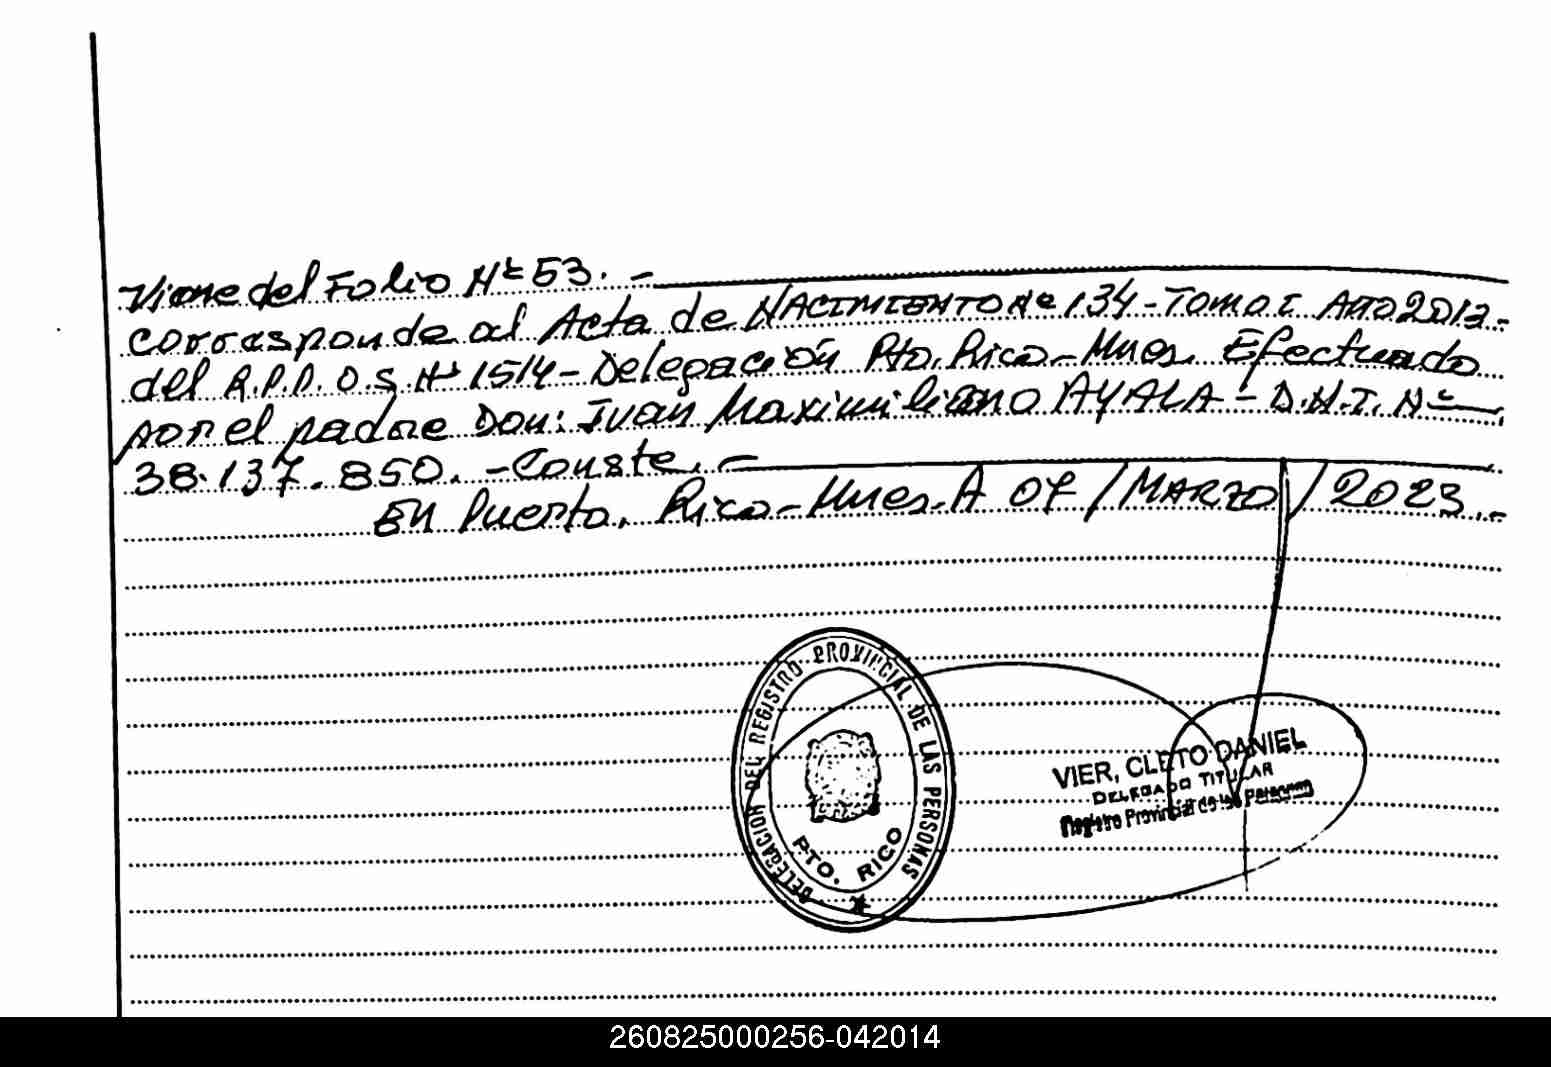 Viene del Folio Nº 53. -
corresponde al Acta de NACIMIENTO Nº 134 - TOMO I AÑO 2012 -
del R.P.P. O.S. Nº 1514 - Delegación Pto. Rico - Mnes. Efectuado
por el padre Don: Ivan Maximiliano AYALA - D.N.I. Nº
38.137.850. - Conste. -
En Puerto. Rico - Mnes. A 07 / MARZO / 2023. -
DELEGACION DEL REGISTRO PROVINCIAL DE LAS PERSONAS
PTO. RICO
VIER, CLETO DANIEL
DELEGADO TITULAR
Registro Provincial de las Personas
260825000256-042014